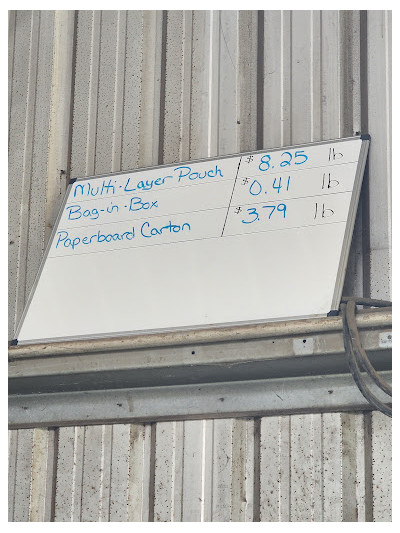 Multi-Layer Pouch $8.25 lb
Bag-in-Box $0.41 lb
Paperboard Carton $3.79 lb